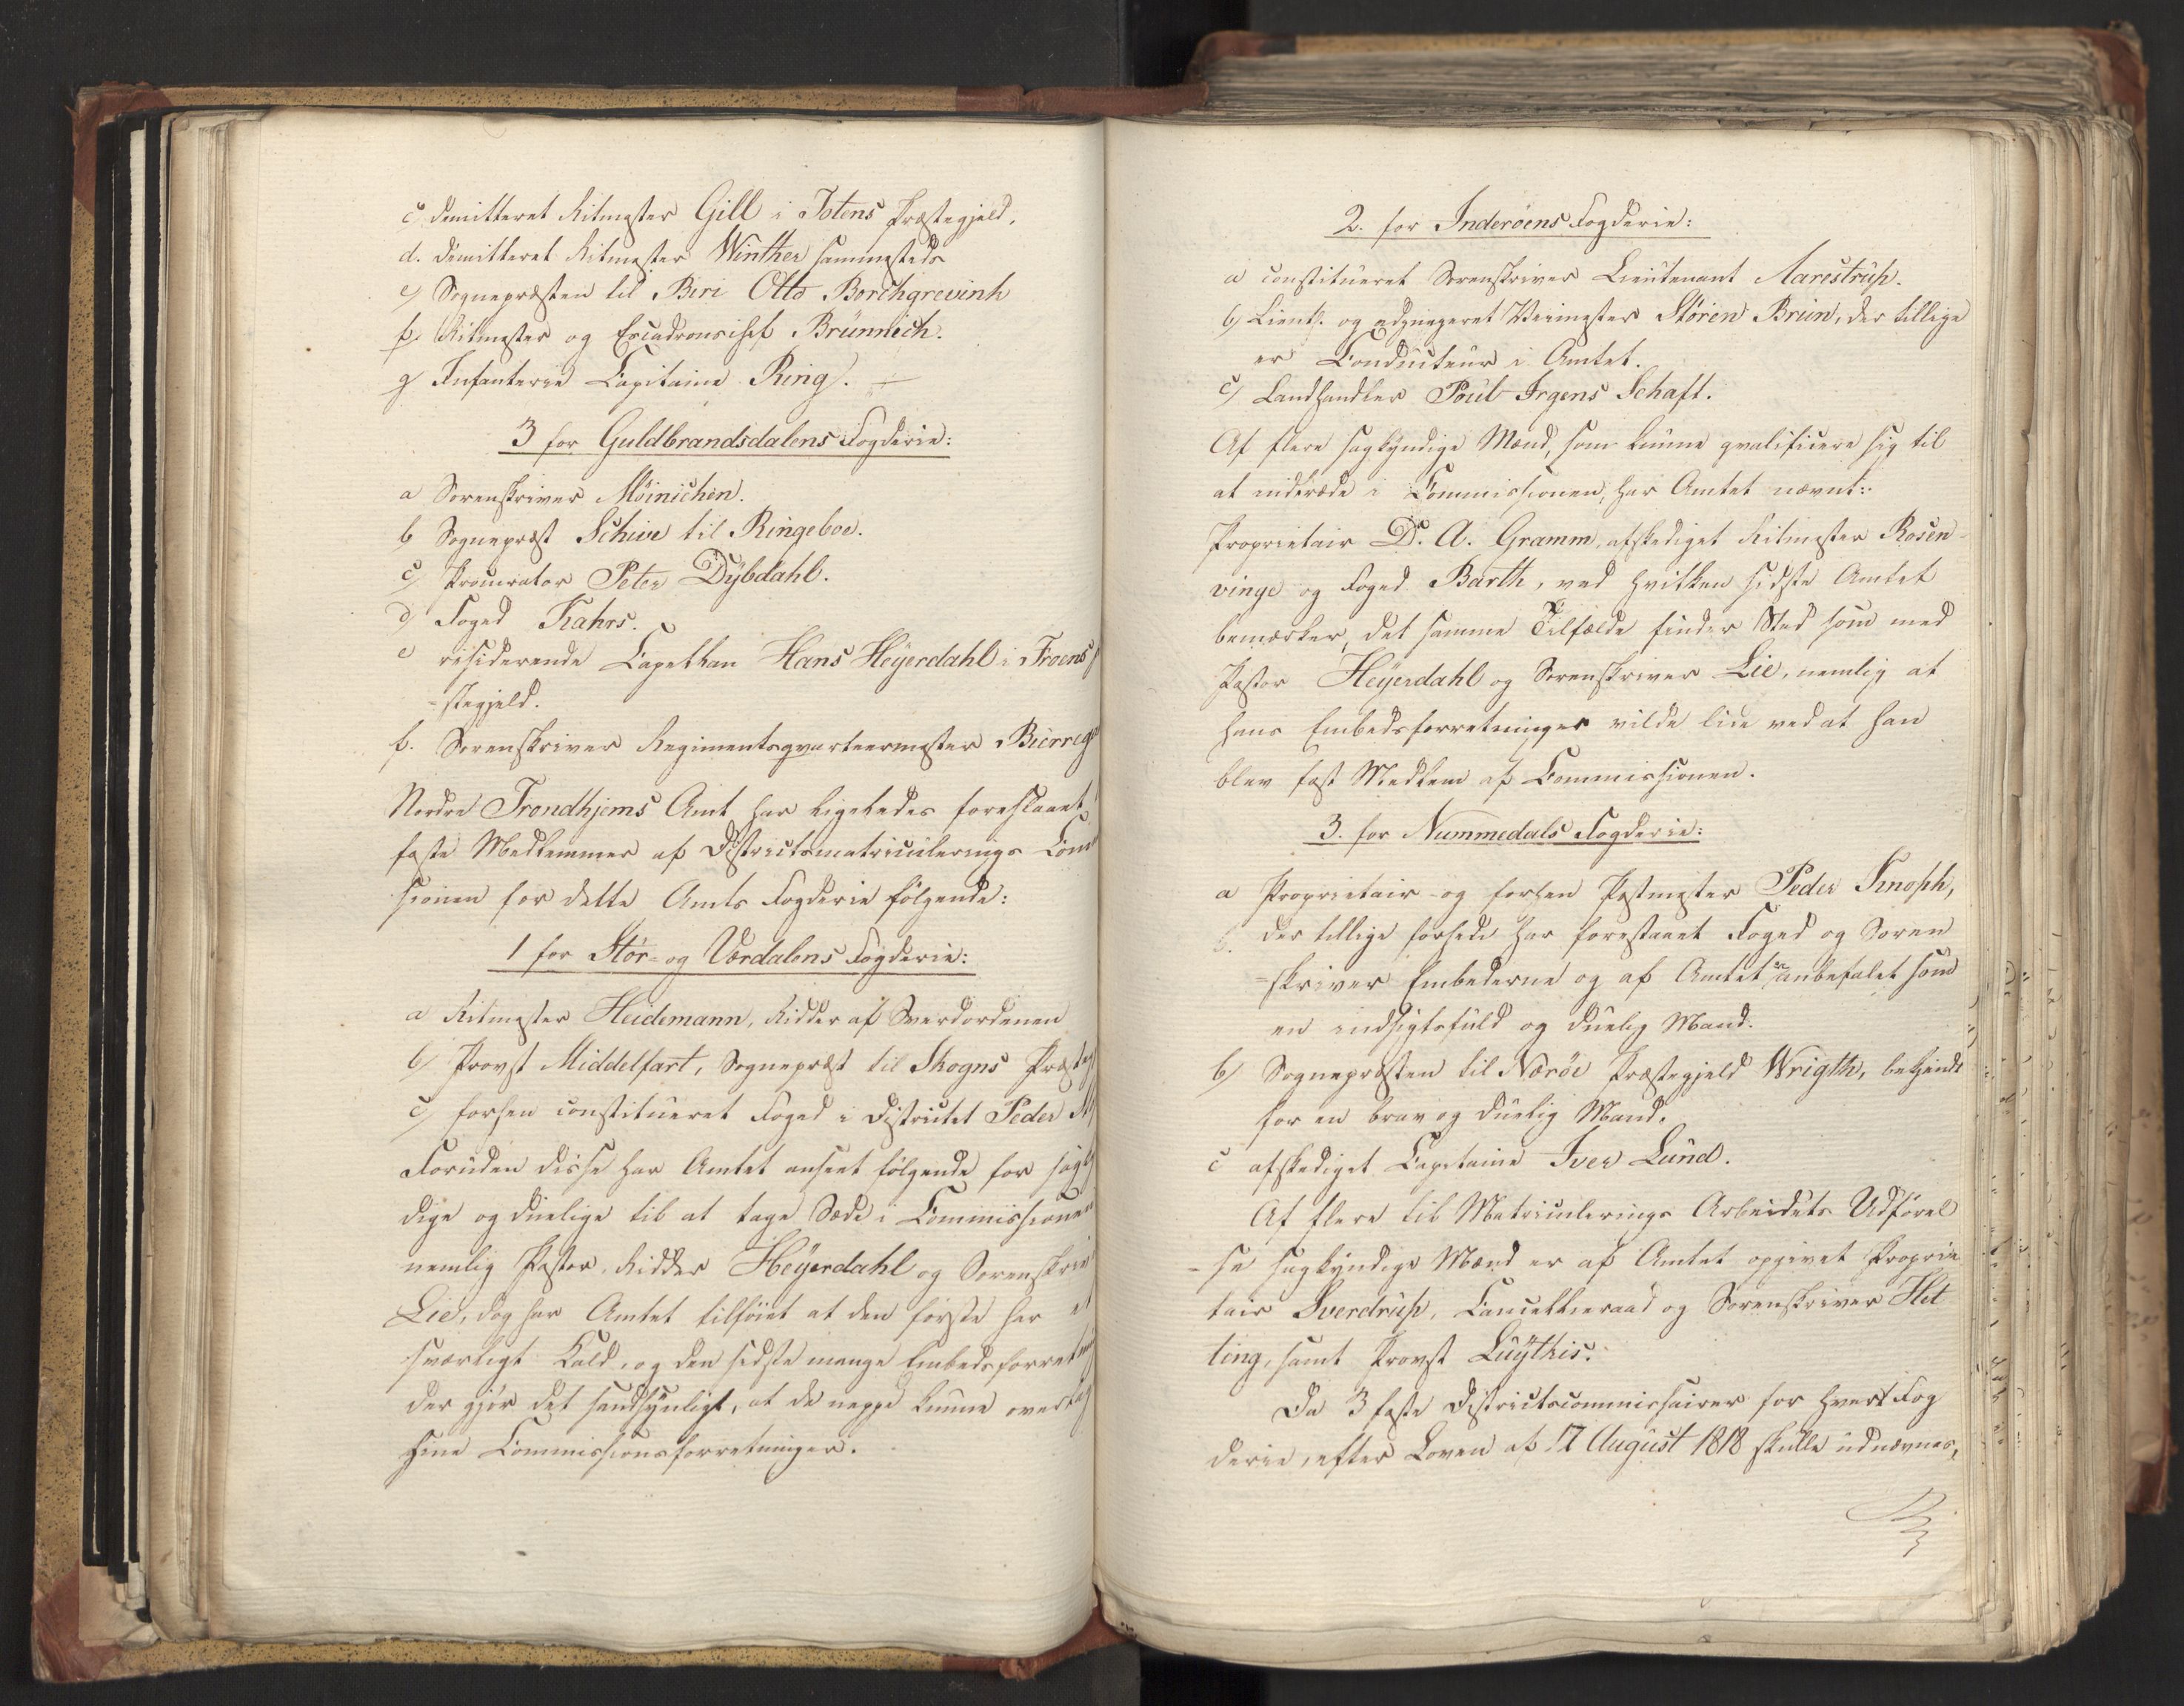 c. demitteret Ritmester Gill i Totens Præstegjeld.
d. demitteret Ritmester Winther sammesteds
e) Sognepræsten til Biri Otto Borchgrevink
f. Ritmester og Escadronschef Brünnich.
g Infanterie Capitaine Ring.
3 for Guldbrandsdalens Fogderie:
a Sorenskriver Möinichen.
b Sognepræst Schive til Ringeboe.
c) Procurator Peter Dÿbdahl.
d) Foged Kahrs.
e residerende Capellan Hans Heÿerdahl i Froens
-stegjeld.
f. Sorenskriver Regimentsqvarteermester Bierreg
Nordre Trondhjems Amt har ligeledes foreslaaet
faste Medlemmer af Districtsmatriculerings Com
sionen for dette Amts Fogderie følgende:
1 for Stör- og Værdalens Fogderie:
a Ritmester Heidemann, Ridder af Sværdordenen
b) Provst Middelfart, Sognepræst til Skogns Præste
c) forhen constitueret Foged i Districtet Peder
Foruden disse har Amtet anseet følgende for sagk
dige og duelige til at tage Sæde i Commissionen
nemlig Pastor, Ridder Heÿerdahl og Sorenskriv
Lie, dog har Amtet tilföiet at den förste har et
sværligt Kald, og den sidste mange Embedsforretn
der gjör det sandsynligt, at de neppe kunne overtag
sine Commissionsforretninger.
2. for Inderöens Fogderie:
a constitueret Sorenskriver Lieutenant Aarestrup.
b) Lieut. og adjungeret Veimester Stören Brun, der tillige
er Conducteur i Amtet.
c) Landhandler Poul Irgens Schaft.
Af flere sagkyndige Mænd, som kunne qvalificere sig til
at indtræde i Commissionen, har Amtet nævnt:
Proprietair D. A. Gramm, afskediget Ritmester Rosen-
vinge og Foged Barth, ved hvilken sidste Amtet
bemærker, det samme Tilfælde finder Sted som med
Pastor Heÿerdahl og Sorenskriver Lie, nemlig at
hans Embedsforretninger vilde lide ved at han
blev fast Medlem af Commissionen.
3. for Nummedals Fogderie:
a Proprietair og forhen Postmester Peder Knoph,
der tillige forhen har forestaaet Foged og Soren
-skriver Embederne og af Amtet er anbefalet som
en indsigtsfuld og duelig Mand.
b) Sognepræsten til Næröe Præstegjeld Wrigth, bekjendt
for en brav og duelig Mand.
c afskediget Capitaine Iver Lund.
Af flere til Matriculerings Arbeidets Udförel
-se sagkyndige Mænd er af Amtet opgivet Proprie
tair Sverdrup, Cancellieraad og Sorenskriver Het
ting, samt Provst Luÿtkis.
Da 3 faste Districtscommissairer for hvert Fog
derie, efter Loven af 17 August 1818 skulle udnævnes,